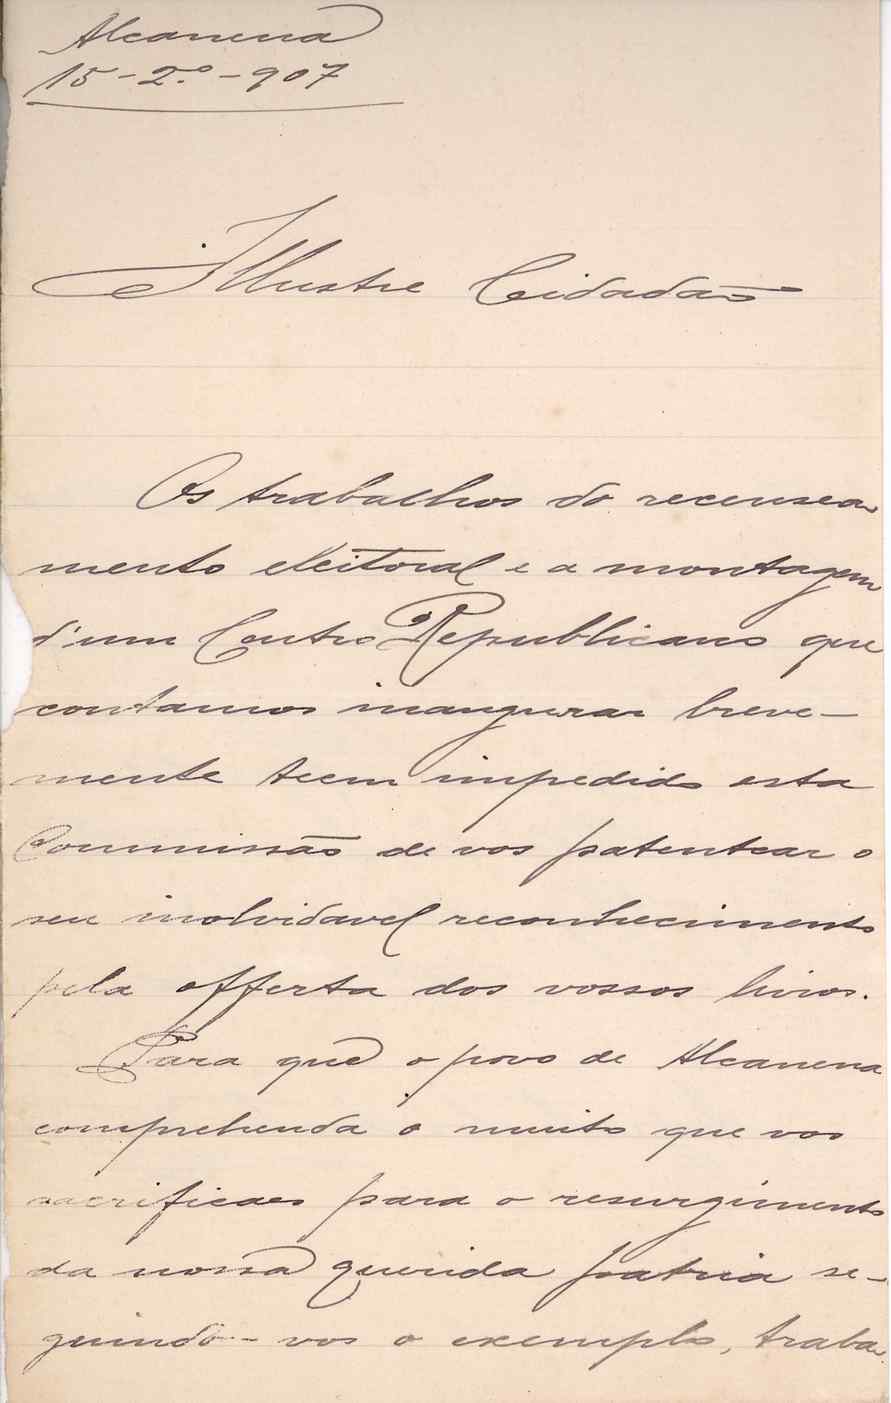 Alcanena
15-2º-907
Illustre Cidadão
Os trabalhos do recensea
mento eleitoral e a montagem
d'um Centro Republicano que
contamos inaugurar breve-
mente teem impedido esta
Commissão de vos patentear o
seu inolvidavel reconhecimento
pela offerta dos vossos livros.
Para que o povo de Alcanena
comprehenda o muito que vos
sacrificaes para o resurgimento
da nossa querida patria se-
guindo-vos o exemplo, traba